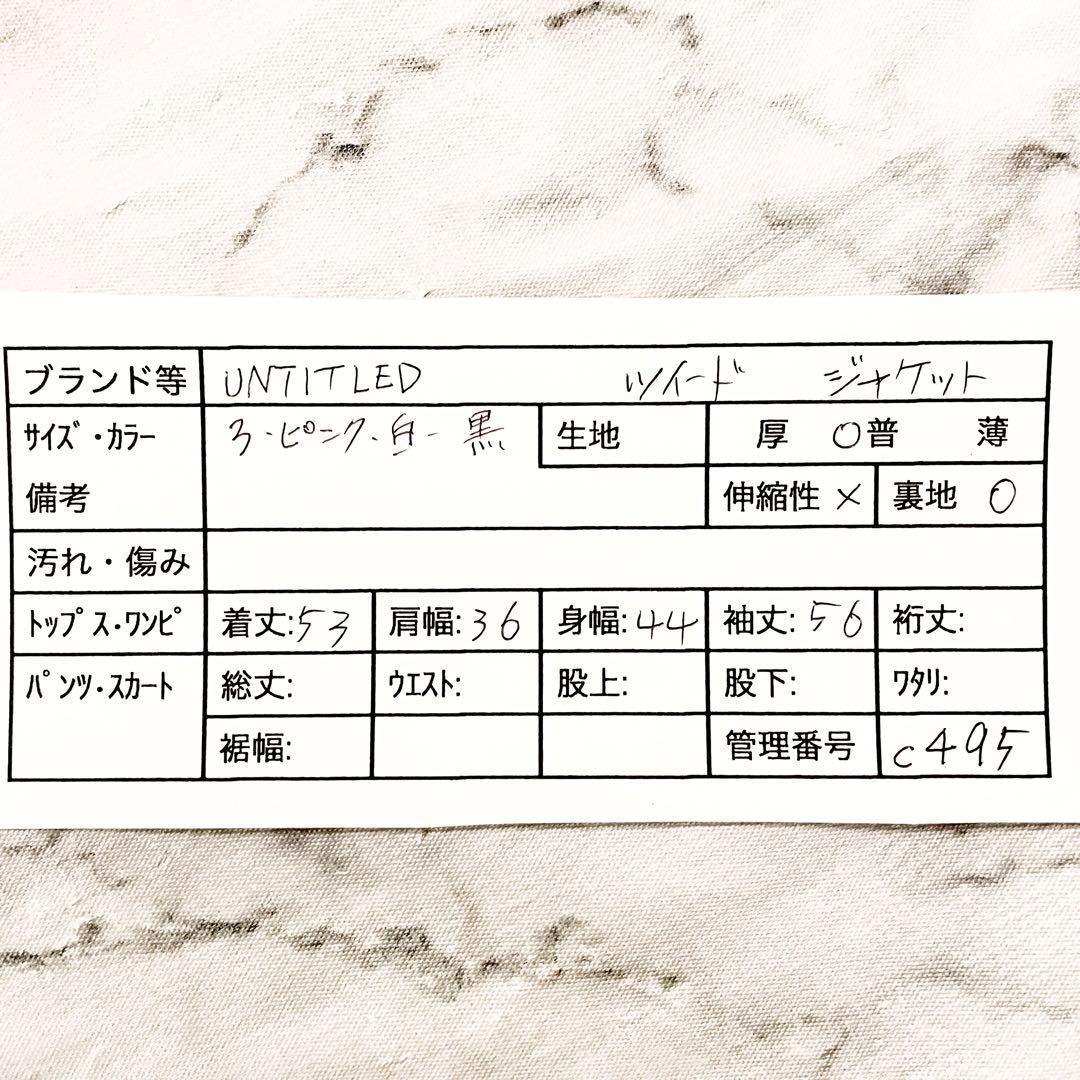 ブランド等 UNTITLED ツイード ジャケット
サイズ・カラー 3・ピンク・白・黒 生地 厚 ○普 薄
備考 伸縮性 × 裏地 ○
汚れ・傷み
トップス・ワンピ 着丈:53 肩幅:36 身幅:44 袖丈:56 裄丈:
パンツ・スカート 総丈: ウエスト: 股上: 股下: ワタリ:
裾幅: 管理番号 c495